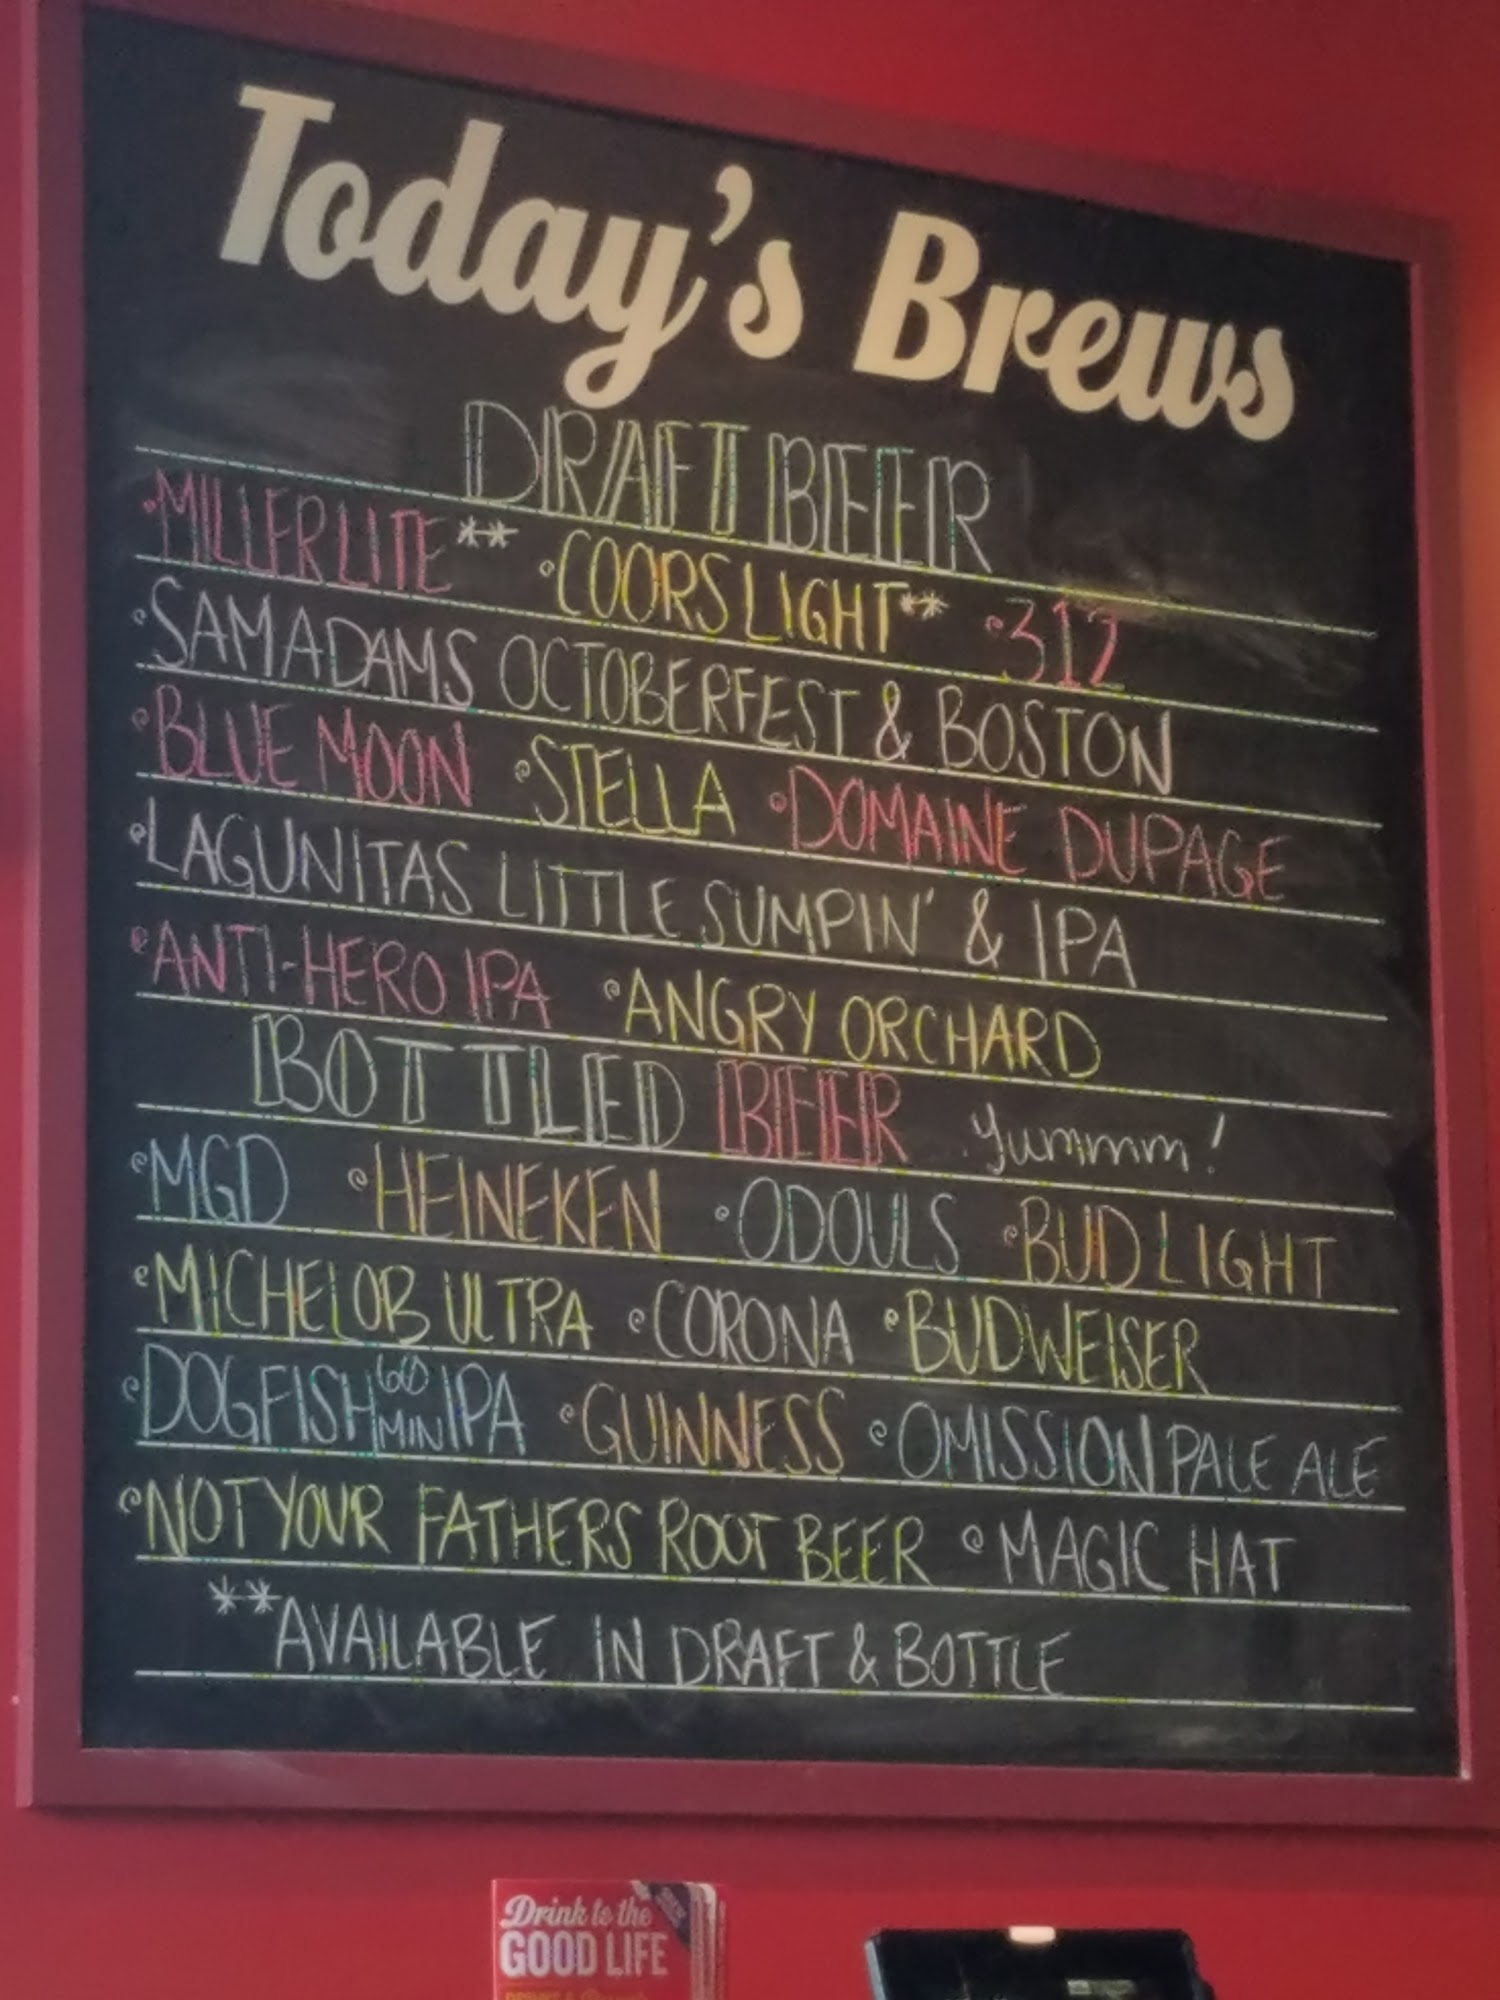 Today's Brews
DRAFT BEER
•MILLER LITE** •COORS LIGHT** •312
•SAM ADAMS OCTOBERFEST & BOSTON
•BLUE MOON •STELLA •DOMAINE DUPAGE
•LAGUNITAS LITTLE SUMPIN' & IPA
•ANTI-HERO IPA •ANGRY ORCHARD
BOTTLED BEER yummm!
•MGD •HEINEKEN •ODOULS •BUD LIGHT
•MICHELOB ULTRA •CORONA •BUDWEISER
•DOGFISH 60 MIN IPA •GUINNESS •OMISSION PALE ALE
•NOT YOUR FATHERS ROOT BEER •MAGIC HAT
**AVAILABLE IN DRAFT & BOTTLE
Drink to the
GOOD LIFE